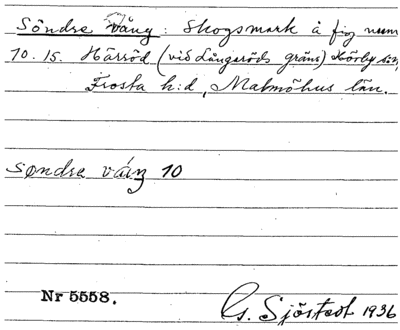 Söndre vång: Skogsmark å fig num
10. 15. Härröd (vid Långaröds gräns) Hörby sn,
Frosta h:d, Malmöhus län.
Söndre vång 10
Nr 5558.
G. Sjöstedt 1936